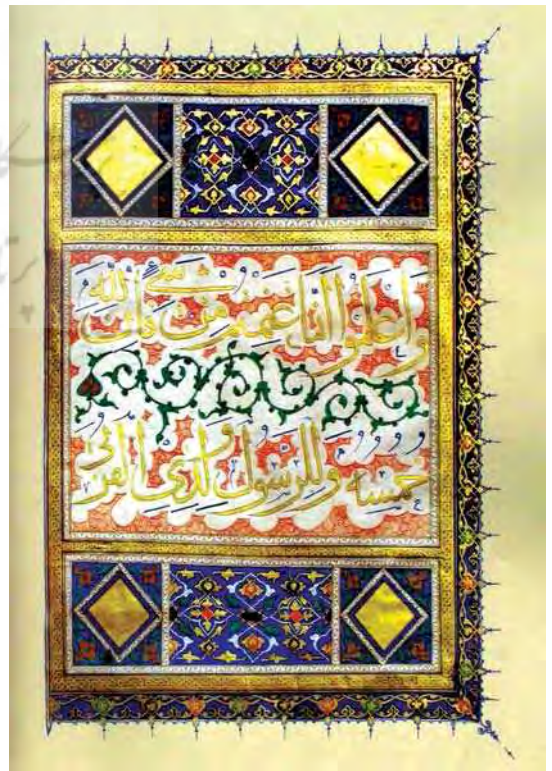 واعلموا أنما غنمتم من شيء فأن لله
خمسه وللرسول ولذي القربى